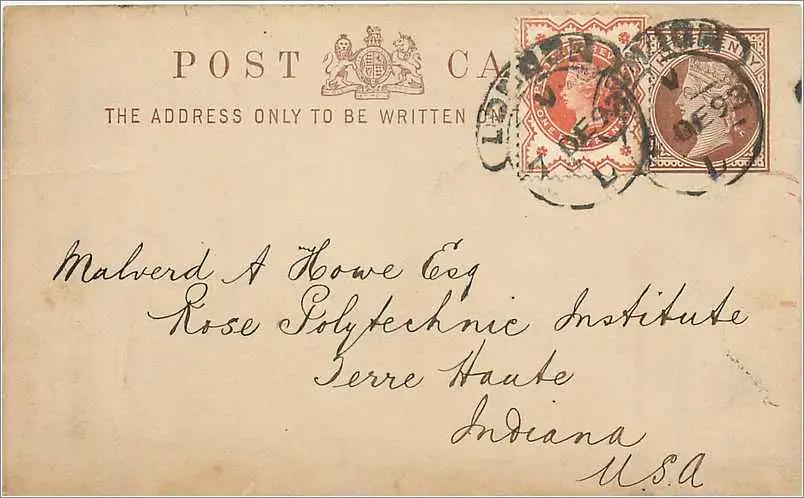 POST CA
THE ADDRESS ONLY TO BE WRITTEN
LONDON
DE
PENNY
DE
Malverd A Howe Esq
Rose Polytechnic Institute
Terre Haute
Indiana
U.S.A